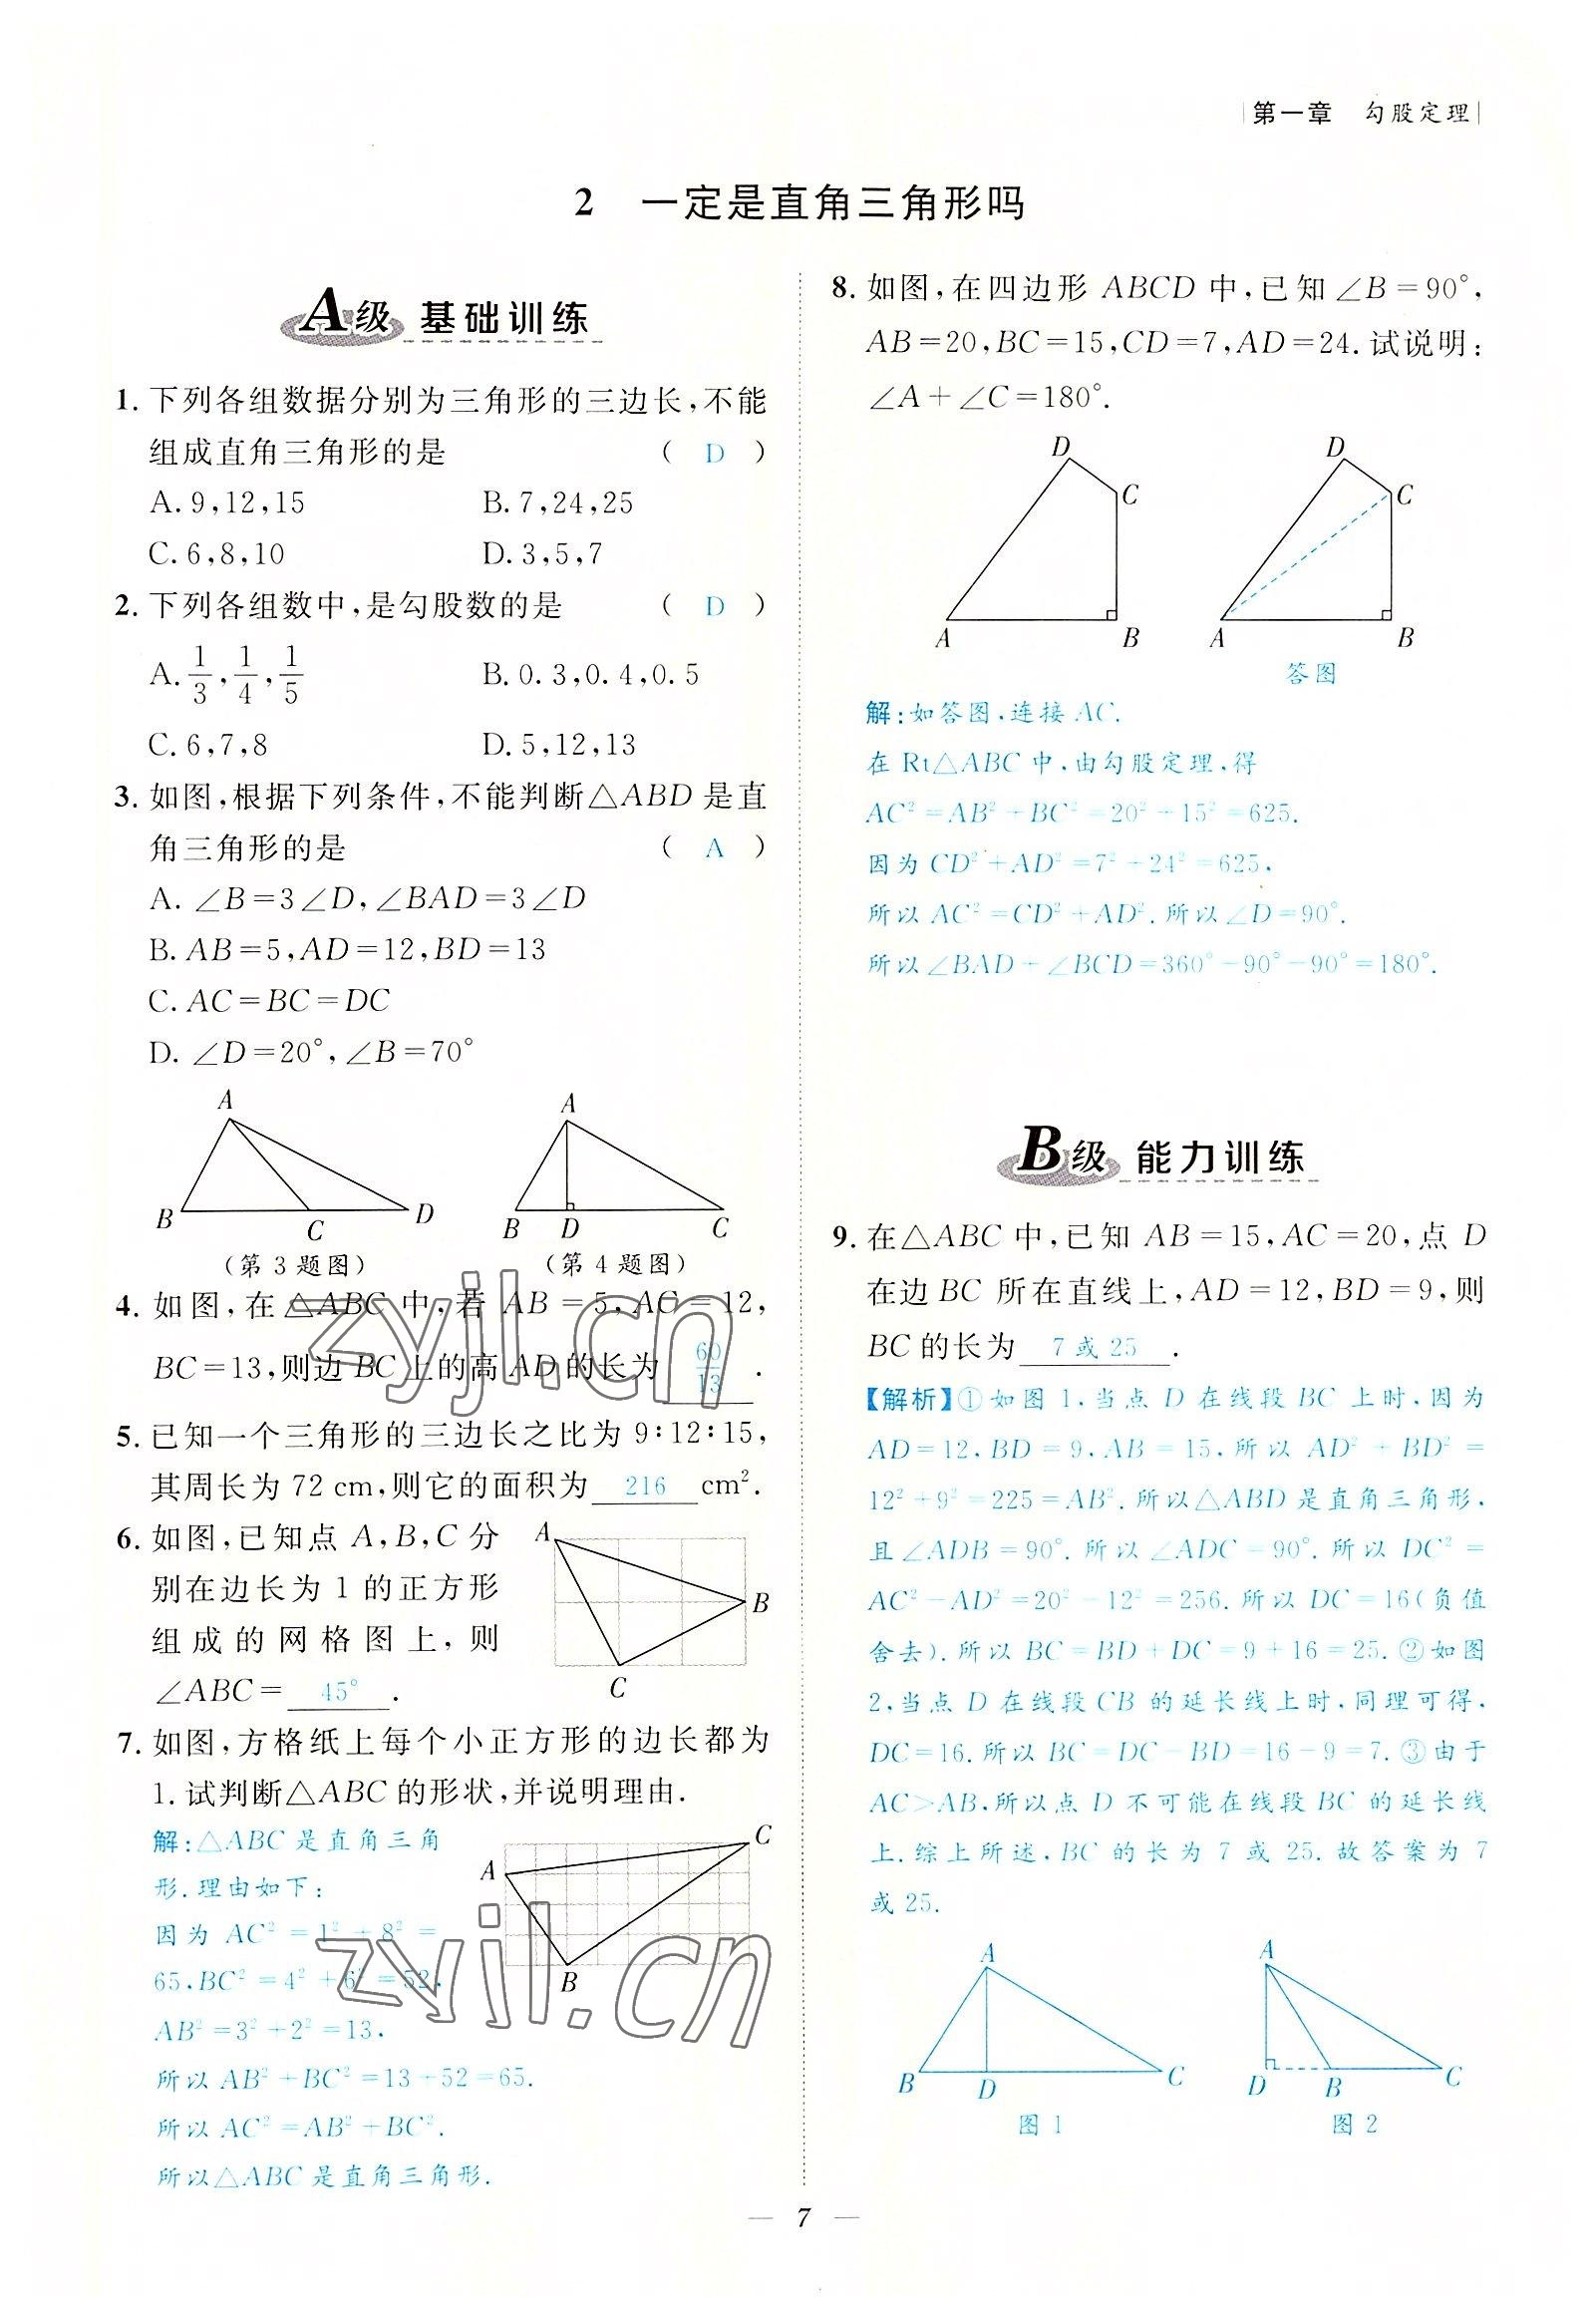 第一章 勾股定理
2 一定是直角三角形吗
A级 基础训练
1. 下列各组数据分别为三角形的三边长,不能
组成直角三角形的是 ( D )
A. 9,12,15 B. 7,24,25
C. 6,8,10 D. 3,5,7
2. 下列各组数中,是勾股数的是 ( D )
A. 1/3, 1/4, 1/5 B. 0.3,0.4,0.5
C. 6,7,8 D. 5,12,13
3. 如图,根据下列条件,不能判断△ABD是直
角三角形的是 ( A )
A. ∠B=3∠D,∠BAD=3∠D
B. AB=5,AD=12,BD=13
C. AC=BC=DC
D. ∠D=20°,∠B=70°
A
B
C
D
(第3题图)
A
B
D
C
(第4题图)
4. 如图,在△ABC中,若AB=5,AC=12,
BC=13,则边BC上的高AD的长为 60/13 .
5. 已知一个三角形的三边长之比为9:12:15,
其周长为72 cm,则它的面积为 216 cm².
6. 如图,已知点A,B,C分
别在边长为1的正方形
组成的网格图上,则
∠ABC= 45° .
A
B
C
7. 如图,方格纸上每个小正方形的边长都为
1.试判断△ABC的形状,并说明理由.
解:△ABC是直角三角
形.理由如下:
因为AC²=1²+8²=
65,BC²=4²+6²=52,
AB²=3²+2²=13,
所以AB²+BC²=13+52=65.
所以AC²=AB²+BC².
所以△ABC是直角三角形.
C
A
B
zyjl.cn
zyjl.cn
8. 如图,在四边形ABCD中,已知∠B=90°,
AB=20,BC=15,CD=7,AD=24.试说明:
∠A+∠C=180°.
D
C
A
B
D
C
A
B
答图
解:如答图,连接AC.
在Rt△ABC中,由勾股定理,得
AC²=AB²+BC²=20²+15²=625.
因为CD²+AD²=7²+24²=625,
所以AC²=CD²+AD².所以∠D=90°.
所以∠BAD+∠BCD=360°-90°-90°=180°.
B级 能力训练
9. 在△ABC中,已知AB=15,AC=20,点D
在边BC所在直线上,AD=12,BD=9,则
BC的长为 7或25 .
【解析】①如图1,当点D在线段BC上时,因为
AD=12,BD=9,AB=15,所以AD²+BD²=
12²+9²=225=AB².所以△ABD是直角三角形,
且∠ADB=90°.所以∠ADC=90°.所以DC²=
AC²-AD²=20²-12²=256.所以DC=16(负值
舍去).所以BC=BD+DC=9+16=25.②如图
2,当点D在线段CB的延长线上时,同理可得,
DC=16.所以BC=DC-BD=16-9=7.③由于
AC>AB,所以点D不可能在线段BC的延长线
上.综上所述,BC的长为7或25.故答案为7
或25.
A
B
D
C
图1
A
D
B
C
图2
— 7 —